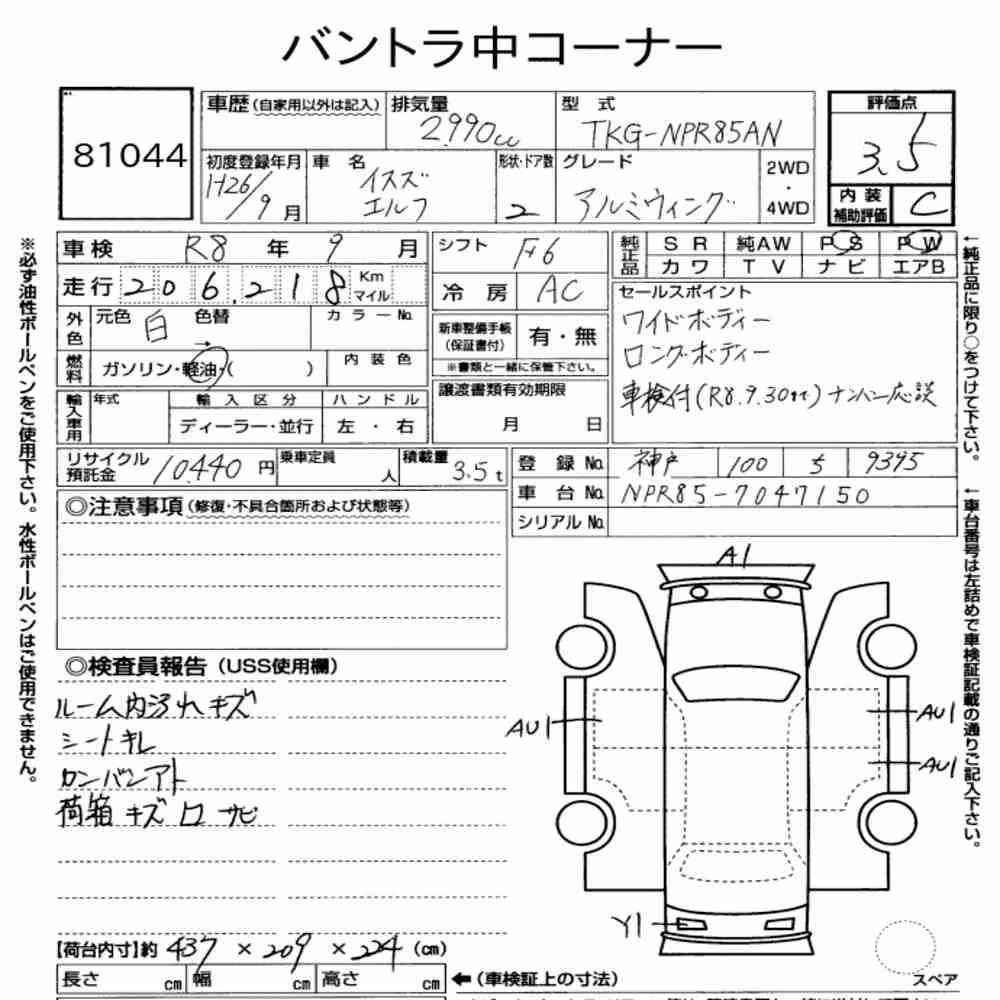 バントラ中コーナー
81044
車歴(自家用以外は記入)
排気量
2,990cc
型 式
TKG-NPR85AN
評価点
3.5
初度登録年月
H26/9月
車 名
イスズ
エルフ
形状・ドア数
2
グレード
アルミウィング
2WD
・
4WD
内 装
補助評価
C
車検 R8 年 9 月
シフト
F6
純正品
S R 純AW P S P W
カワ T V ナビ エアB
走行 206,218 Km マイル
冷 房 AC
セールスポイント
ワイドボディー
ロングボディー
車検付(R8.9.30まで)ナンバー応談
外色
元色 白 色替 →
カラーNo.
新車整備手帳
(保証書付)
有・無
※書類と一緒に保管下さい。
燃料
ガソリン・軽油・( )
内装色
譲渡書類有効期限
月 日
輸入車用
年式
輸入区分
ハンドル
ディーラー・並行
左・右
リサイクル
預託金
10,440 円
乗車定員
人
積載量
3.5t
登 録 No. 神戸 100 う 9395
車 台 No. NPR85-7047150
シリアル No.
◎注意事項(修復・不具合箇所および状態等)
◎検査員報告(USS使用欄)
ルーム内汚れキズ
シートキレ
カンバンアト
荷箱 キズ 凹 サビ
A1
AU1
AU1
AU1
Y1
【荷台内寸】約 437 × 209 × 224 (cm)
長さ cm 幅 cm 高さ cm
←(車検証上の寸法)
スペア
※必ず油性ボールペンをご使用下さい。水性ボールペンはご使用できません。
←純正品に限り○をつけて下さい。
←車台番号は左詰めで車検証記載の通りご記入下さい。